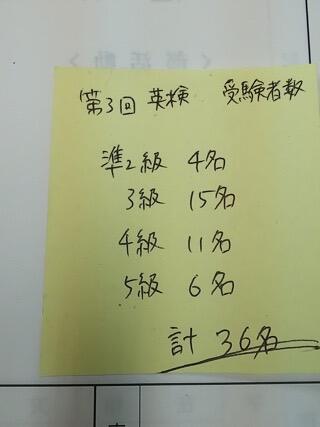 第3回 英検 受験者数
準2級 4名
3級 15名
4級 11名
5級 6名
計 36名